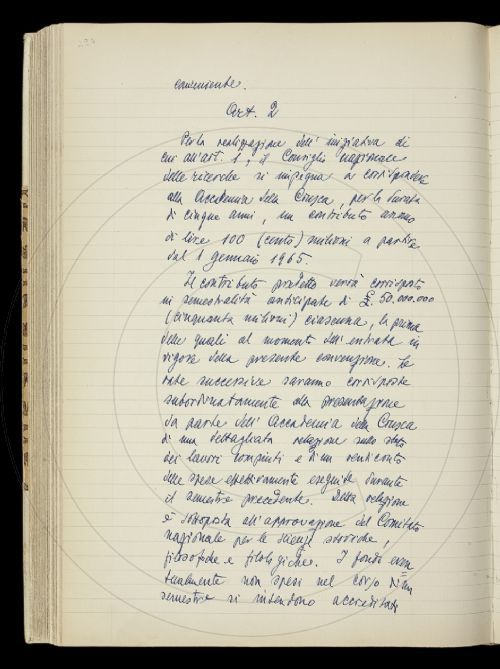 conveniente.
Art. 2
Per la realizzazione dell' iniziativa di
cui all'art. 1, il Consiglio nazionale
delle ricerche si impegna a corrispondere
alla Accademia della Crusca, per la durata
di cinque anni, un contributo annuo
di lire 100 (cento) milioni a partire
dal 1 gennaio 1965.
Il contributo predetto verrà corrisposto
in semestralità anticipate di £. 50.000.000
(cinquanta milioni) ciascuna, la prima
delle quali al momento dell'entrata in
vigore della presente convenzione. Le
rate successive saranno corrisposte
subordinatamente alla presentazione
da parte dell'Accademia della Crusca
di una dettagliata relazione sullo stato
dei lavori compiuti e d'un rendiconto
delle spese effettivamente eseguite durante
il semestre precedente. Detta relazione
è sottoposta all'approvazione del Comitato
nazionale per le scienze storiche,
filosofiche e filologiche. I fondi even
tualmente non spesi nel corso d'un
semestre si intendono accreditati